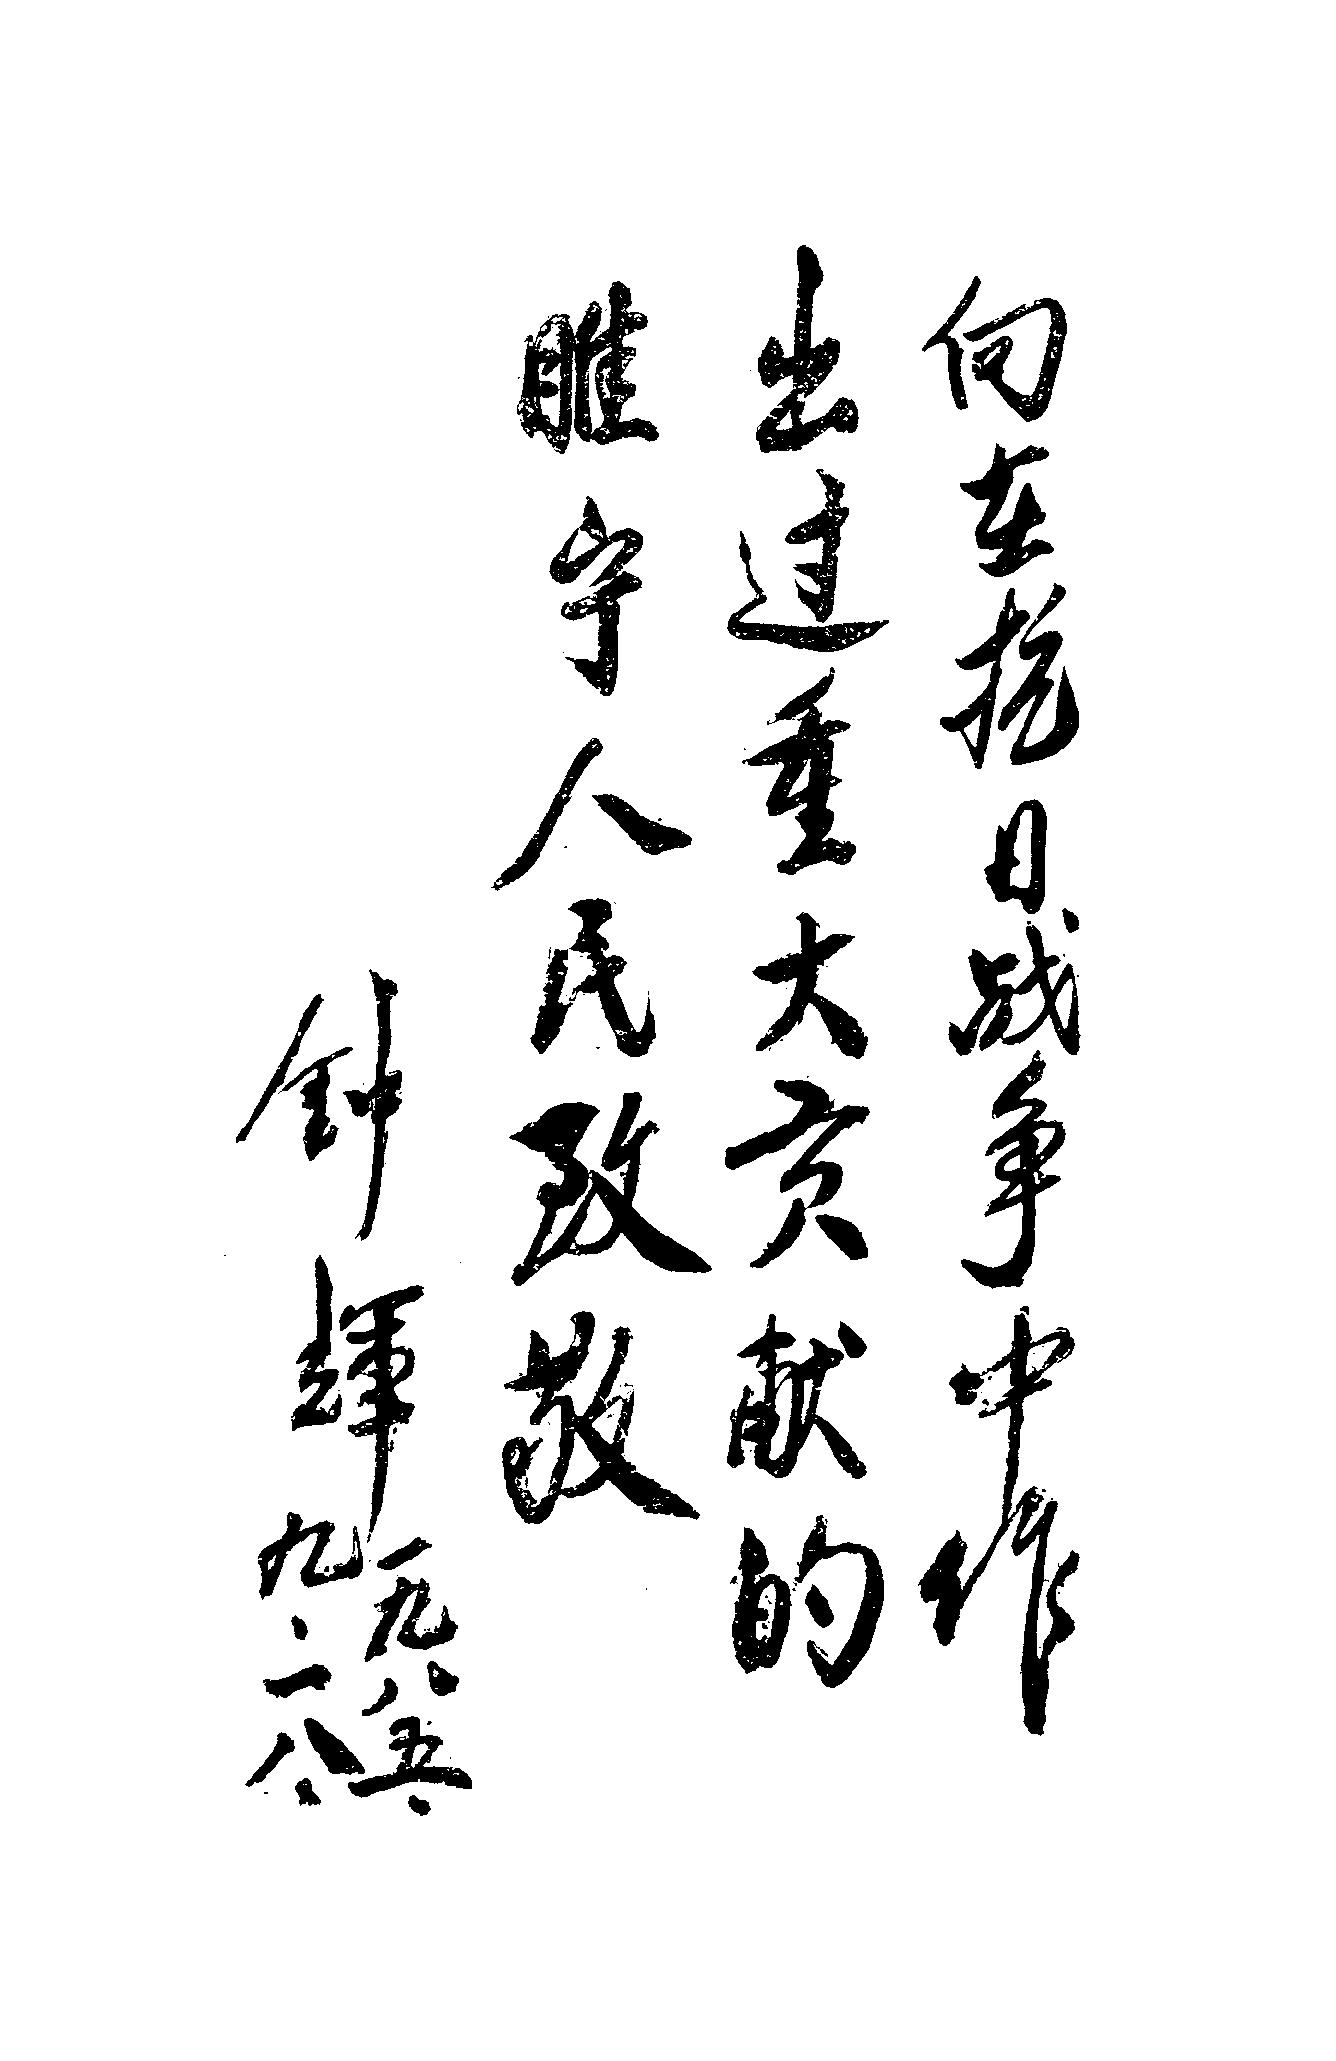 向在抗日战争中作
出过重大贡献的
睢宁人民致敬
钟辉
一九八五、
九、一八、